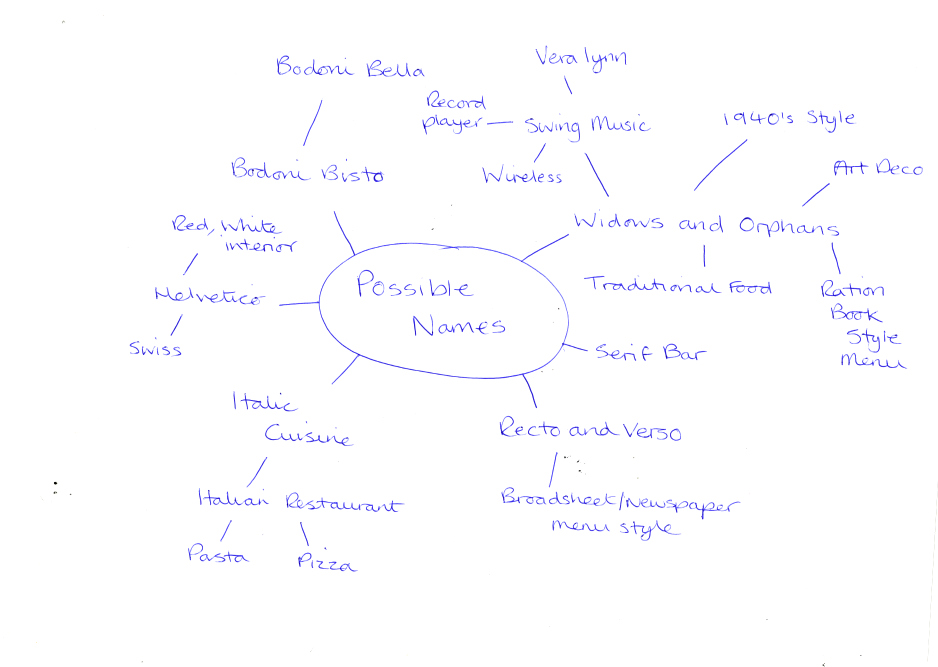 Bodoni Bella
Vera lynn
Record
player
Swing Music
1940's Style
Wireless
Art Deco
Bodoni Bisto
Widows and Orphans
Red, White
interior
Traditional Food
Ration
Book
Style
menu
Helvetica
Swiss
Possible
Names
Serif Bar
Italic
Cuisine
Recto and Verso
Italian Restaurant
Pasta
Pizza
Broadsheet/Newspaper
menu style